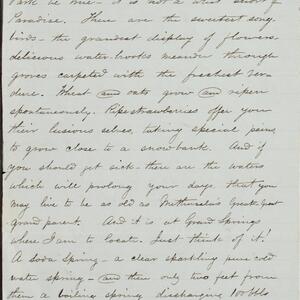 Park be true - it is not a whit short of
Paradise. There are the sweetest song
birds - the grandest display of flowers.
delicious water brooks meander through
groves carpeted with the freshest ver
dure. Wheat and oats grow and ripen
spontaneously. Ripe strawberries offer you
their lusious selves, taking special pains
to grow close to a snowbank. And if
you should get sick - there are the waters
which will prolong your days that you
may live to be as old as Methuselas Great-Great
grand parent. And it is at Grand Springs
where I am to locate. Just think of it!
A soda Spring - a clear sparkling pure cold
water spring - and then only two feet from
them a boiling spring discharging 100 bbls